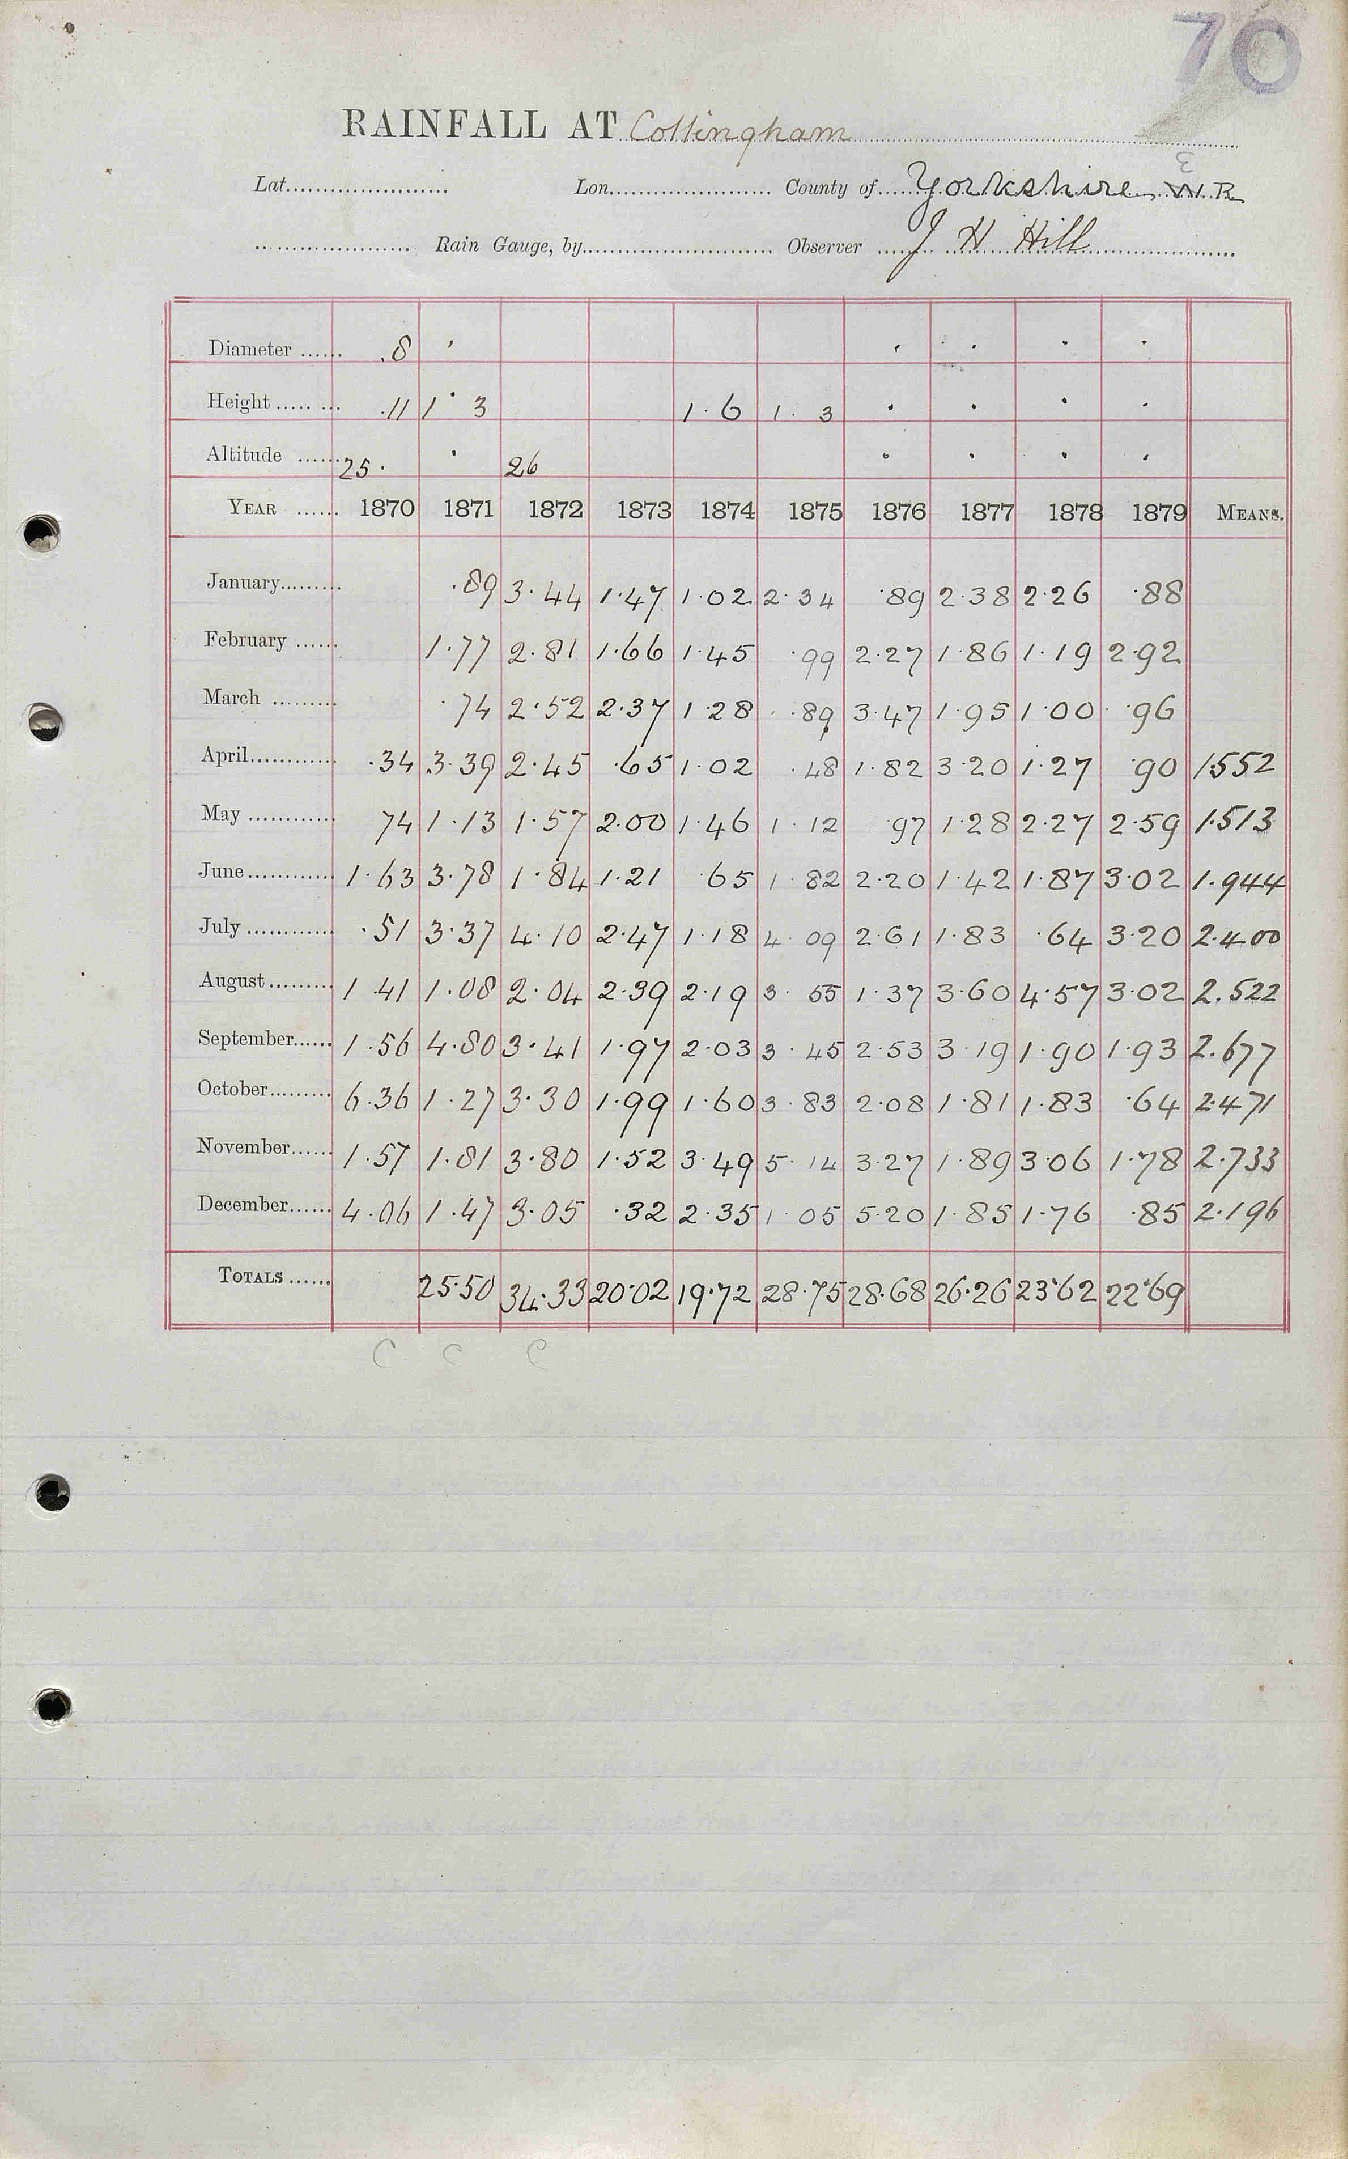 70
RAINFALL AT Cottingham
Lat. Lon. County of Yorkshire W.R E
Rain Gauge, by Observer J H Hill
Diameter 8
Height .11 1 3 1.6 1. 3
Altitude 25. 26
YEAR 1870 1871 1872 1873 1874 1875 1876 1877 1878 1879 MEANS.
January .89 3.44 1.47 1.02 2.34 .89 2.38 2.26 .88
February 1.77 2.81 1.66 1.45 .99 2.27 1.86 1.19 2.92
March .74 2.52 2.37 1.28 .89 3.47 1.95 1.00 .96
April .34 3.39 2.45 .65 1.02 .48 1.82 3.20 1.27 .90 1.552
May 74 1.13 1.57 2.00 1.46 1.12 .97 1.28 2.27 2.59 1.513
June 1.63 3.78 1.84 1.21 .65 1.82 2.20 1.42 1.87 3.02 1.944
July .51 3.37 4.10 2.47 1.18 4.09 2.61 1.83 .64 3.20 2.400
August 1.41 1.08 2.04 2.39 2.19 3.55 1.37 3.60 4.57 3.02 2.522
September 1.56 4.80 3.41 1.97 2.03 3.45 2.53 3.19 1.90 1.93 2.677
October 6.36 1.27 3.30 1.99 1.60 3.83 2.08 1.81 1.83 .64 2.471
November 1.57 1.81 3.80 1.52 3.49 5.14 3.27 1.89 3.06 1.78 2.733
December 4.06 1.47 3.05 .32 2.35 1.05 5.20 1.85 1.76 .85 2.196
TOTALS 25.50 34.33 20.02 19.72 28.75 28.68 26.26 23.62 22.69
C C C